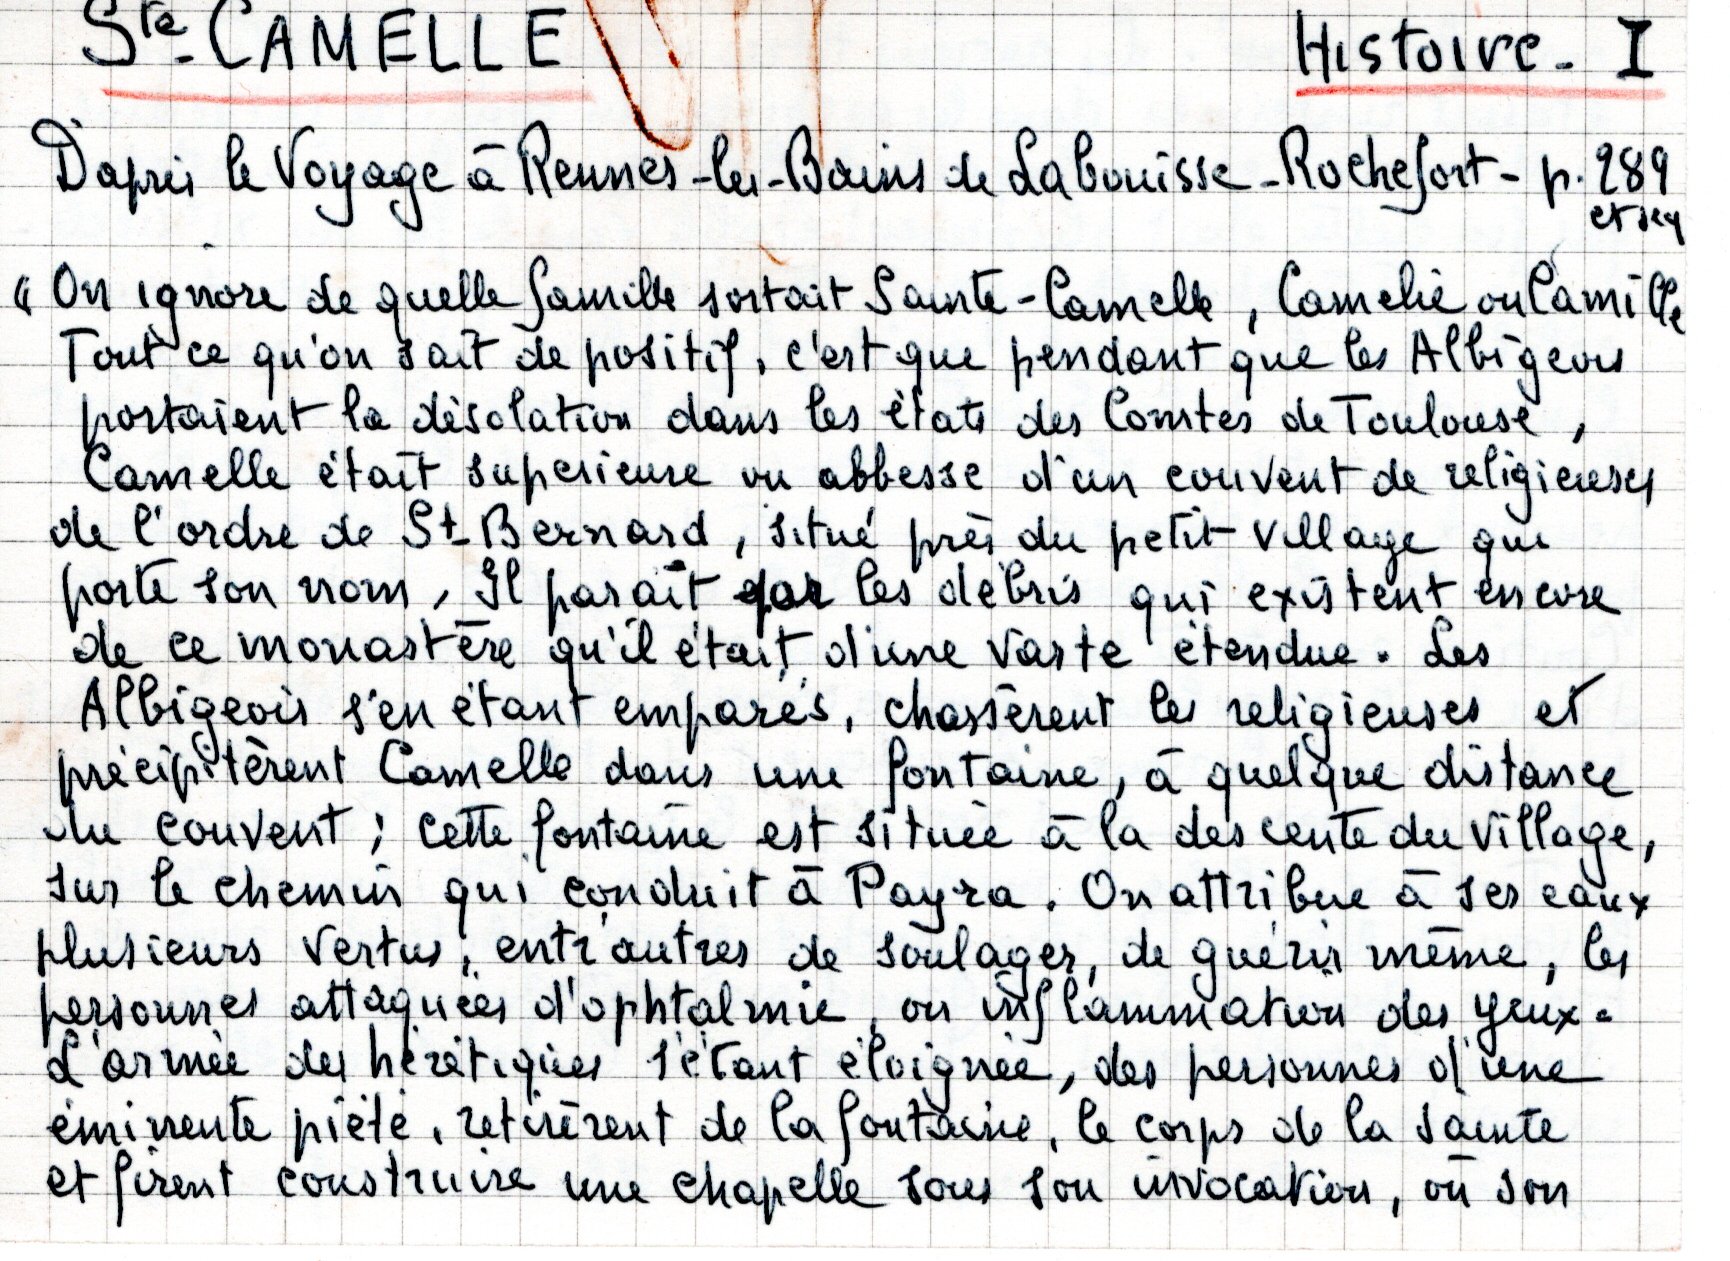 Ste. CAMELLE
Histoire - I
D'après le Voyage à Rennes-les-Bains de Labouisse-Rochefort - p. 289
et seq
" On ignore de quelle famille sortait Sainte-Camelle, Camelie ou Camille
Tout ce qu'on sait de positif, c'est que pendant que les Albigeois
portaient la désolation dans les états des Comtes de Toulouse,
Camelle était superieure ou abbesse d'un couvent de religieuses
de l'ordre de St-Bernard, situé près du petit village qui
porte son nom, Il paraît par les débris qui existent encore
de ce monastère qu'il était d'une vaste étendue. Les
Albigeois s'en étant emparés, chassèrent les religieuses et
précipitèrent Camelle dans une fontaine, à quelque distance
du couvent ; cette fontaine est située à la descente du village,
sur le chemin qui conduit à Payra. On attribue à ses eaux
plusieurs vertus, entr'autres de soulager, de guérir même, les
personnes attaquées d'ophtalmie, ou inflammation des yeux.
L'armée des hérétiques s'étant éloignée, des personnes d'une
éminente piété, retirèrent de la fontaine, le corps de la sainte
et firent construire une chapelle sous son invocation, où son